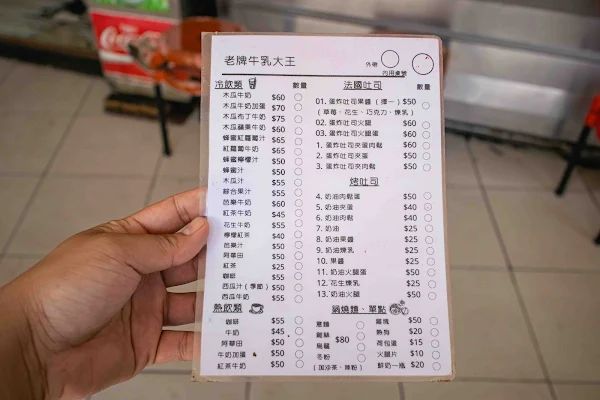 老牌牛乳大王
外帶
內用桌號
冷飲類 數量
木瓜牛奶 $60
木瓜牛奶加蛋 $70
木瓜布丁牛奶 $75
木瓜蘋果牛奶 $60
蜂蜜紅蘿蔔汁 $65
紅蘿蔔牛奶 $65
蜂蜜檸檬汁 $50
蜂蜜汁 $50
木瓜汁 $55
綜合果汁 $55
芭樂牛奶 $60
紅茶牛奶 $45
花生牛奶 $55
檸檬紅茶 $40
芭樂汁 $50
阿華田 $50
紅茶 $25
咖啡 $50
西瓜汁（季節） $50
西瓜牛奶 $55
熱飲類
咖啡 $55
牛奶 $45
阿華田 $50
牛奶加蛋 $50
紅茶牛奶 $50
法國吐司 數量
01. 蛋炸吐司果醬（擇一） $50
（草莓、花生、巧克力、煉乳）
02. 蛋炸吐司火腿 $60
03. 蛋炸吐司火腿蛋 $60
1. 蛋炸吐司夾蛋肉鬆 $60
2. 蛋炸吐司夾蛋 $50
3. 蛋炸吐司夾肉鬆 $50
烤吐司
4. 奶油肉鬆蛋 $50
5. 奶油夾蛋 $40
6. 奶油肉鬆 $40
7. 奶油 $25
8. 奶油果醬 $25
9. 奶油煉乳 $25
10. 果醬 $25
11. 奶油火腿蛋 $50
12. 花生煉乳 $25
13. 奶油火腿 $50
鍋燒麵、單點
意麵
雞絲
烏龍
冬粉
$80
（加沙茶、辣粉）
雞塊 $50
熱狗 $20
荷包蛋 $15
火腿片 $10
鮮奶一瓶 $20
Coca